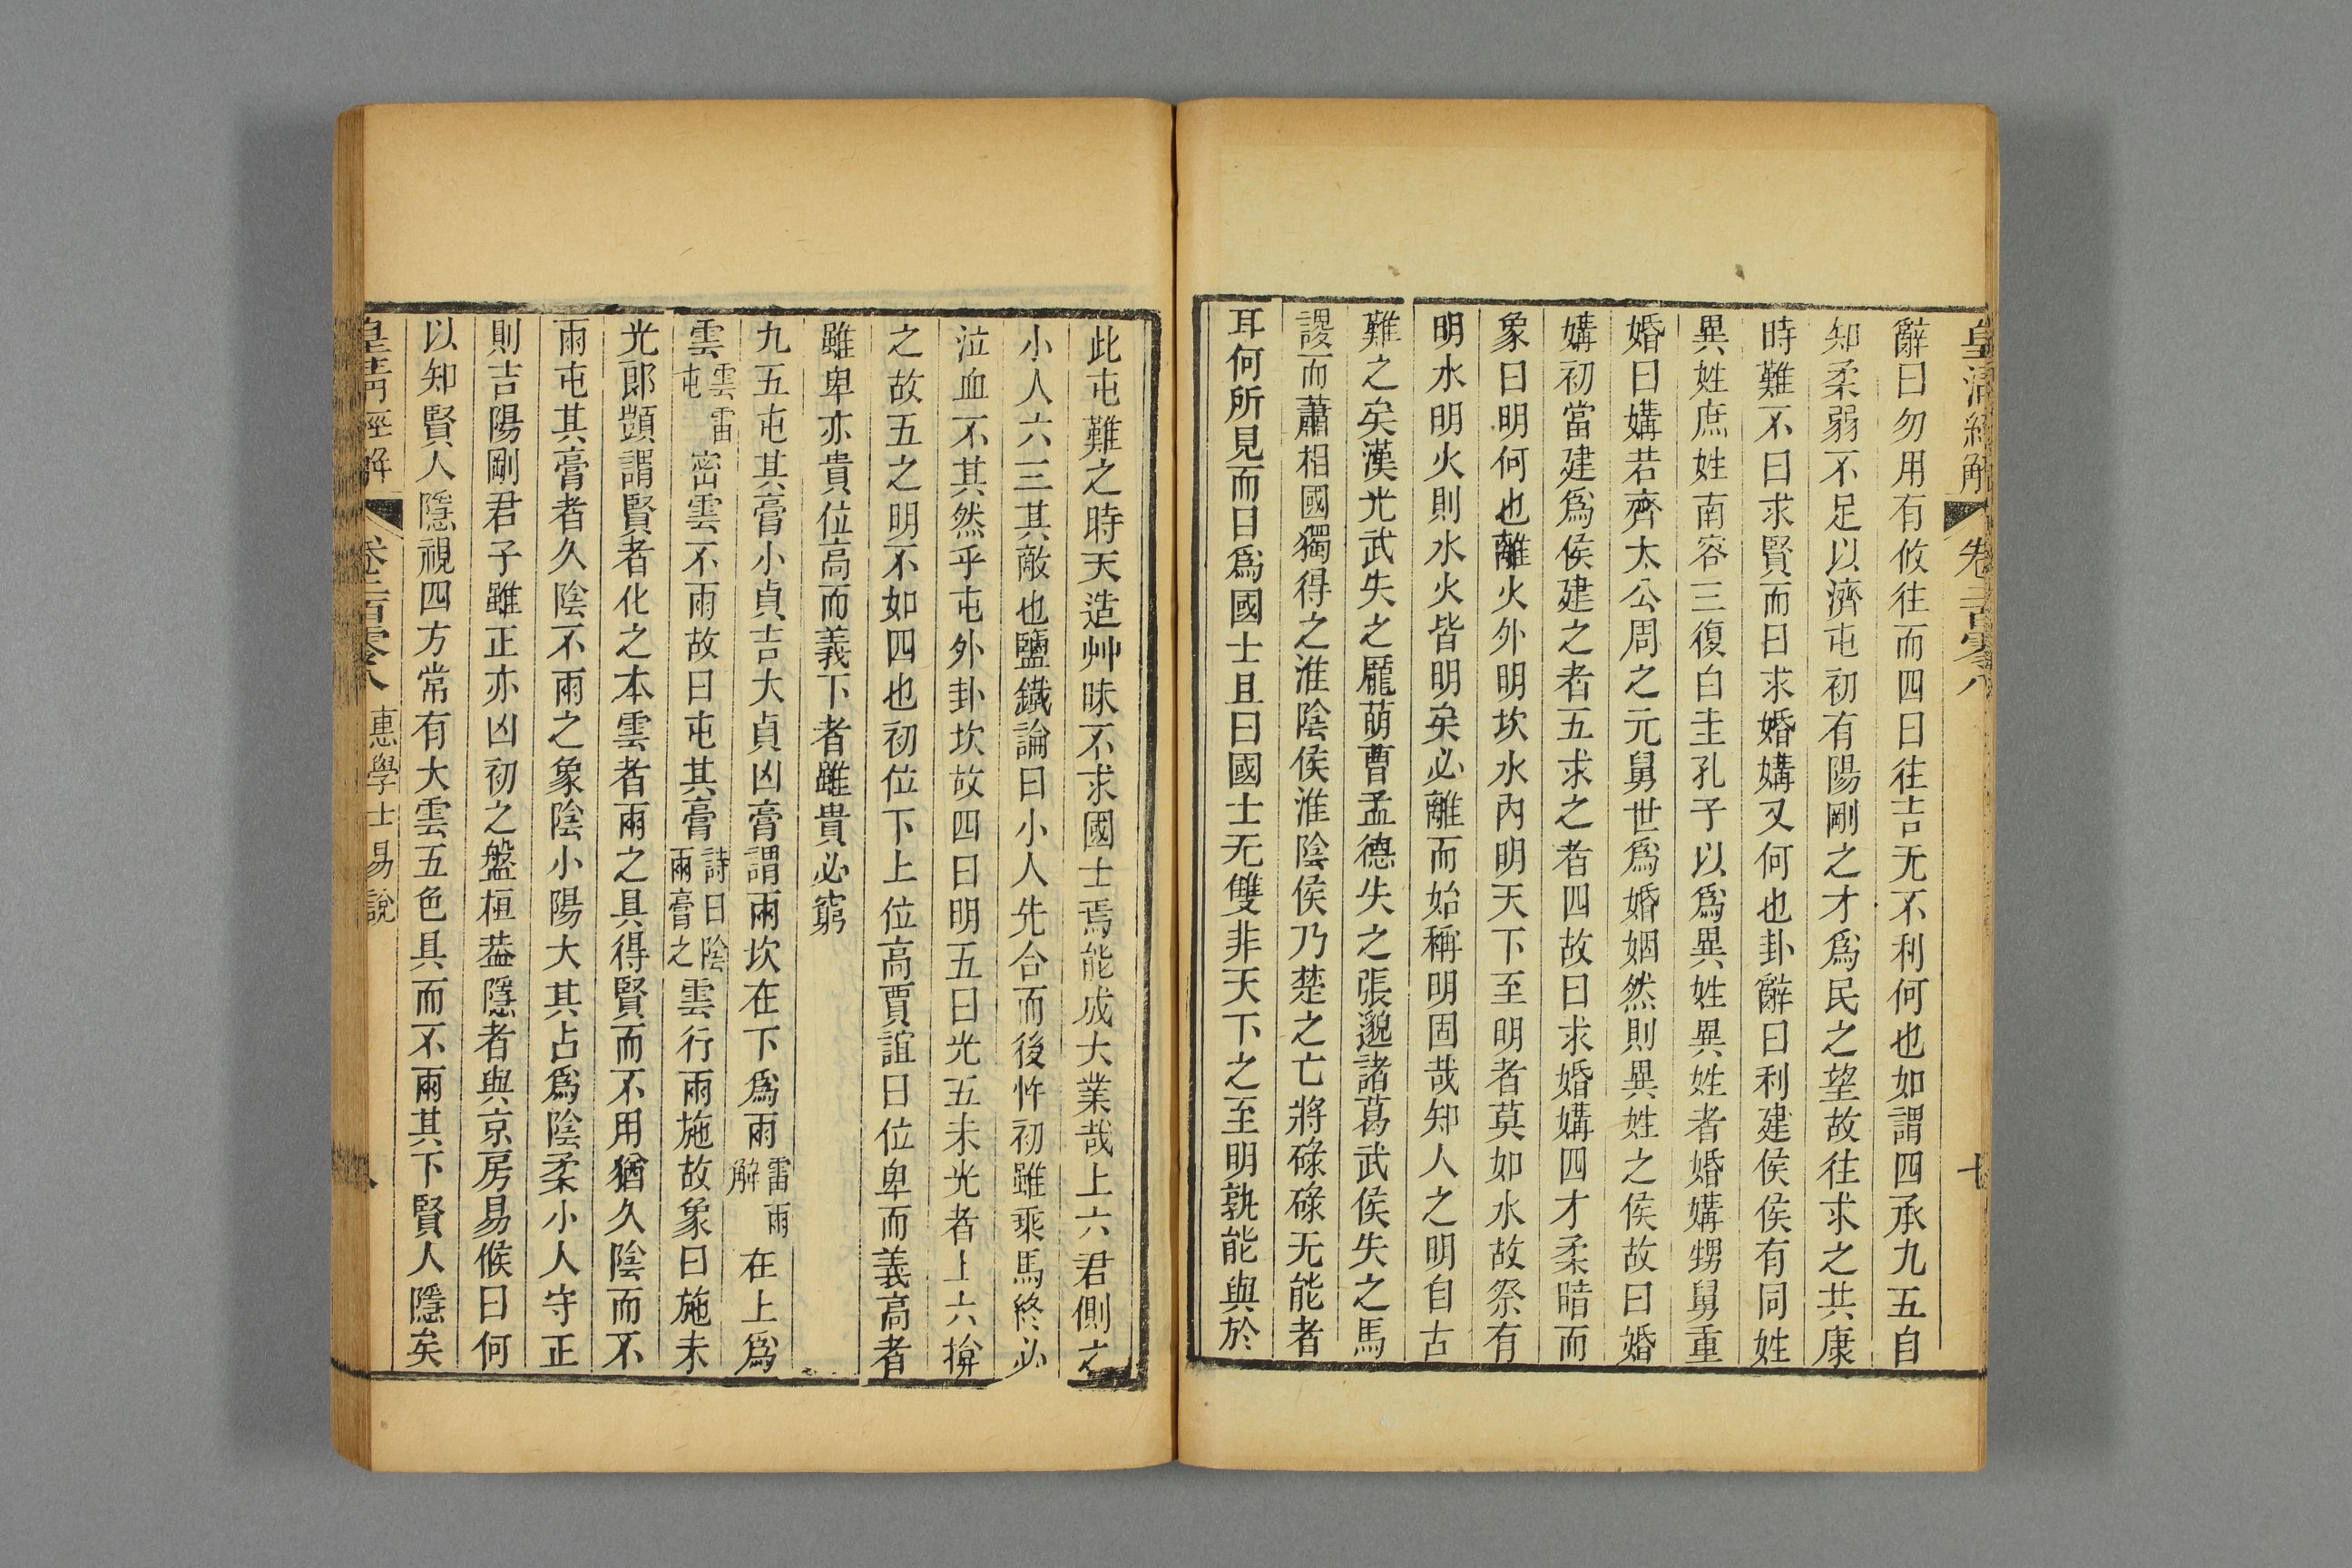 皇清經解 卷二百零八 七
辭曰勿用有攸往而四曰往吉无不利何也如謂四承九五自
知柔弱不足以濟屯初有陽剛之才爲民之望故往求之共康
時難不曰求賢而曰求婚媾又何也卦辭曰利建侯侯有同姓
異姓庶姓南容三復白圭孔子以爲異姓異姓者婚媾甥舅重
婚曰媾若齊太公周之元舅世爲婚姻然則異姓之侯故曰婚
媾初當建爲侯建之者五求之者四故曰求婚媾四才柔暗而
象曰明何也離火外明坎水內明天下至明者莫如水故祭有
明水明火則水火皆明矣必離而始稱明固哉知人之明自古
難之矣漢光武失之龐萌曹孟德失之張邈諸葛武侯失之馬
謖而蕭相國獨得之淮陰侯淮陰侯乃楚之亡將碌碌无能者
耳何所見而曰爲國士且曰國士无雙非天下之至明孰能與於
此屯難之時天造艸昧不求國士焉能成大業哉上六君側之
小人六三其敵也鹽鐵論曰小人先合而後忤初雖乘馬終必
泣血不其然乎屯外卦坎故四曰明五曰光五未光者上六揜
之故五之明不如四也初位下上位高賈誼曰位卑而義高者
雖卑亦貴位高而義下者雖貴必窮
九五屯其膏小貞吉大貞凶膏謂雨坎在下爲雨雷雨解在上爲
雲雲雷屯密雲不雨故曰屯其膏詩曰陰雨膏之雲行雨施故象曰施未
光郎顗謂賢者化之本雲者雨之具得賢而不用猶久陰而不
雨屯其膏者久陰不雨之象陰小陽大其占爲陰柔小人守正
則吉陽剛君子雖正亦凶初之盤桓葢隱者與京房易候曰何
以知賢人隱視四方常有大雲五色具而不雨其下賢人隱矣
皇清經解 卷二百零八 惠學士易說 八